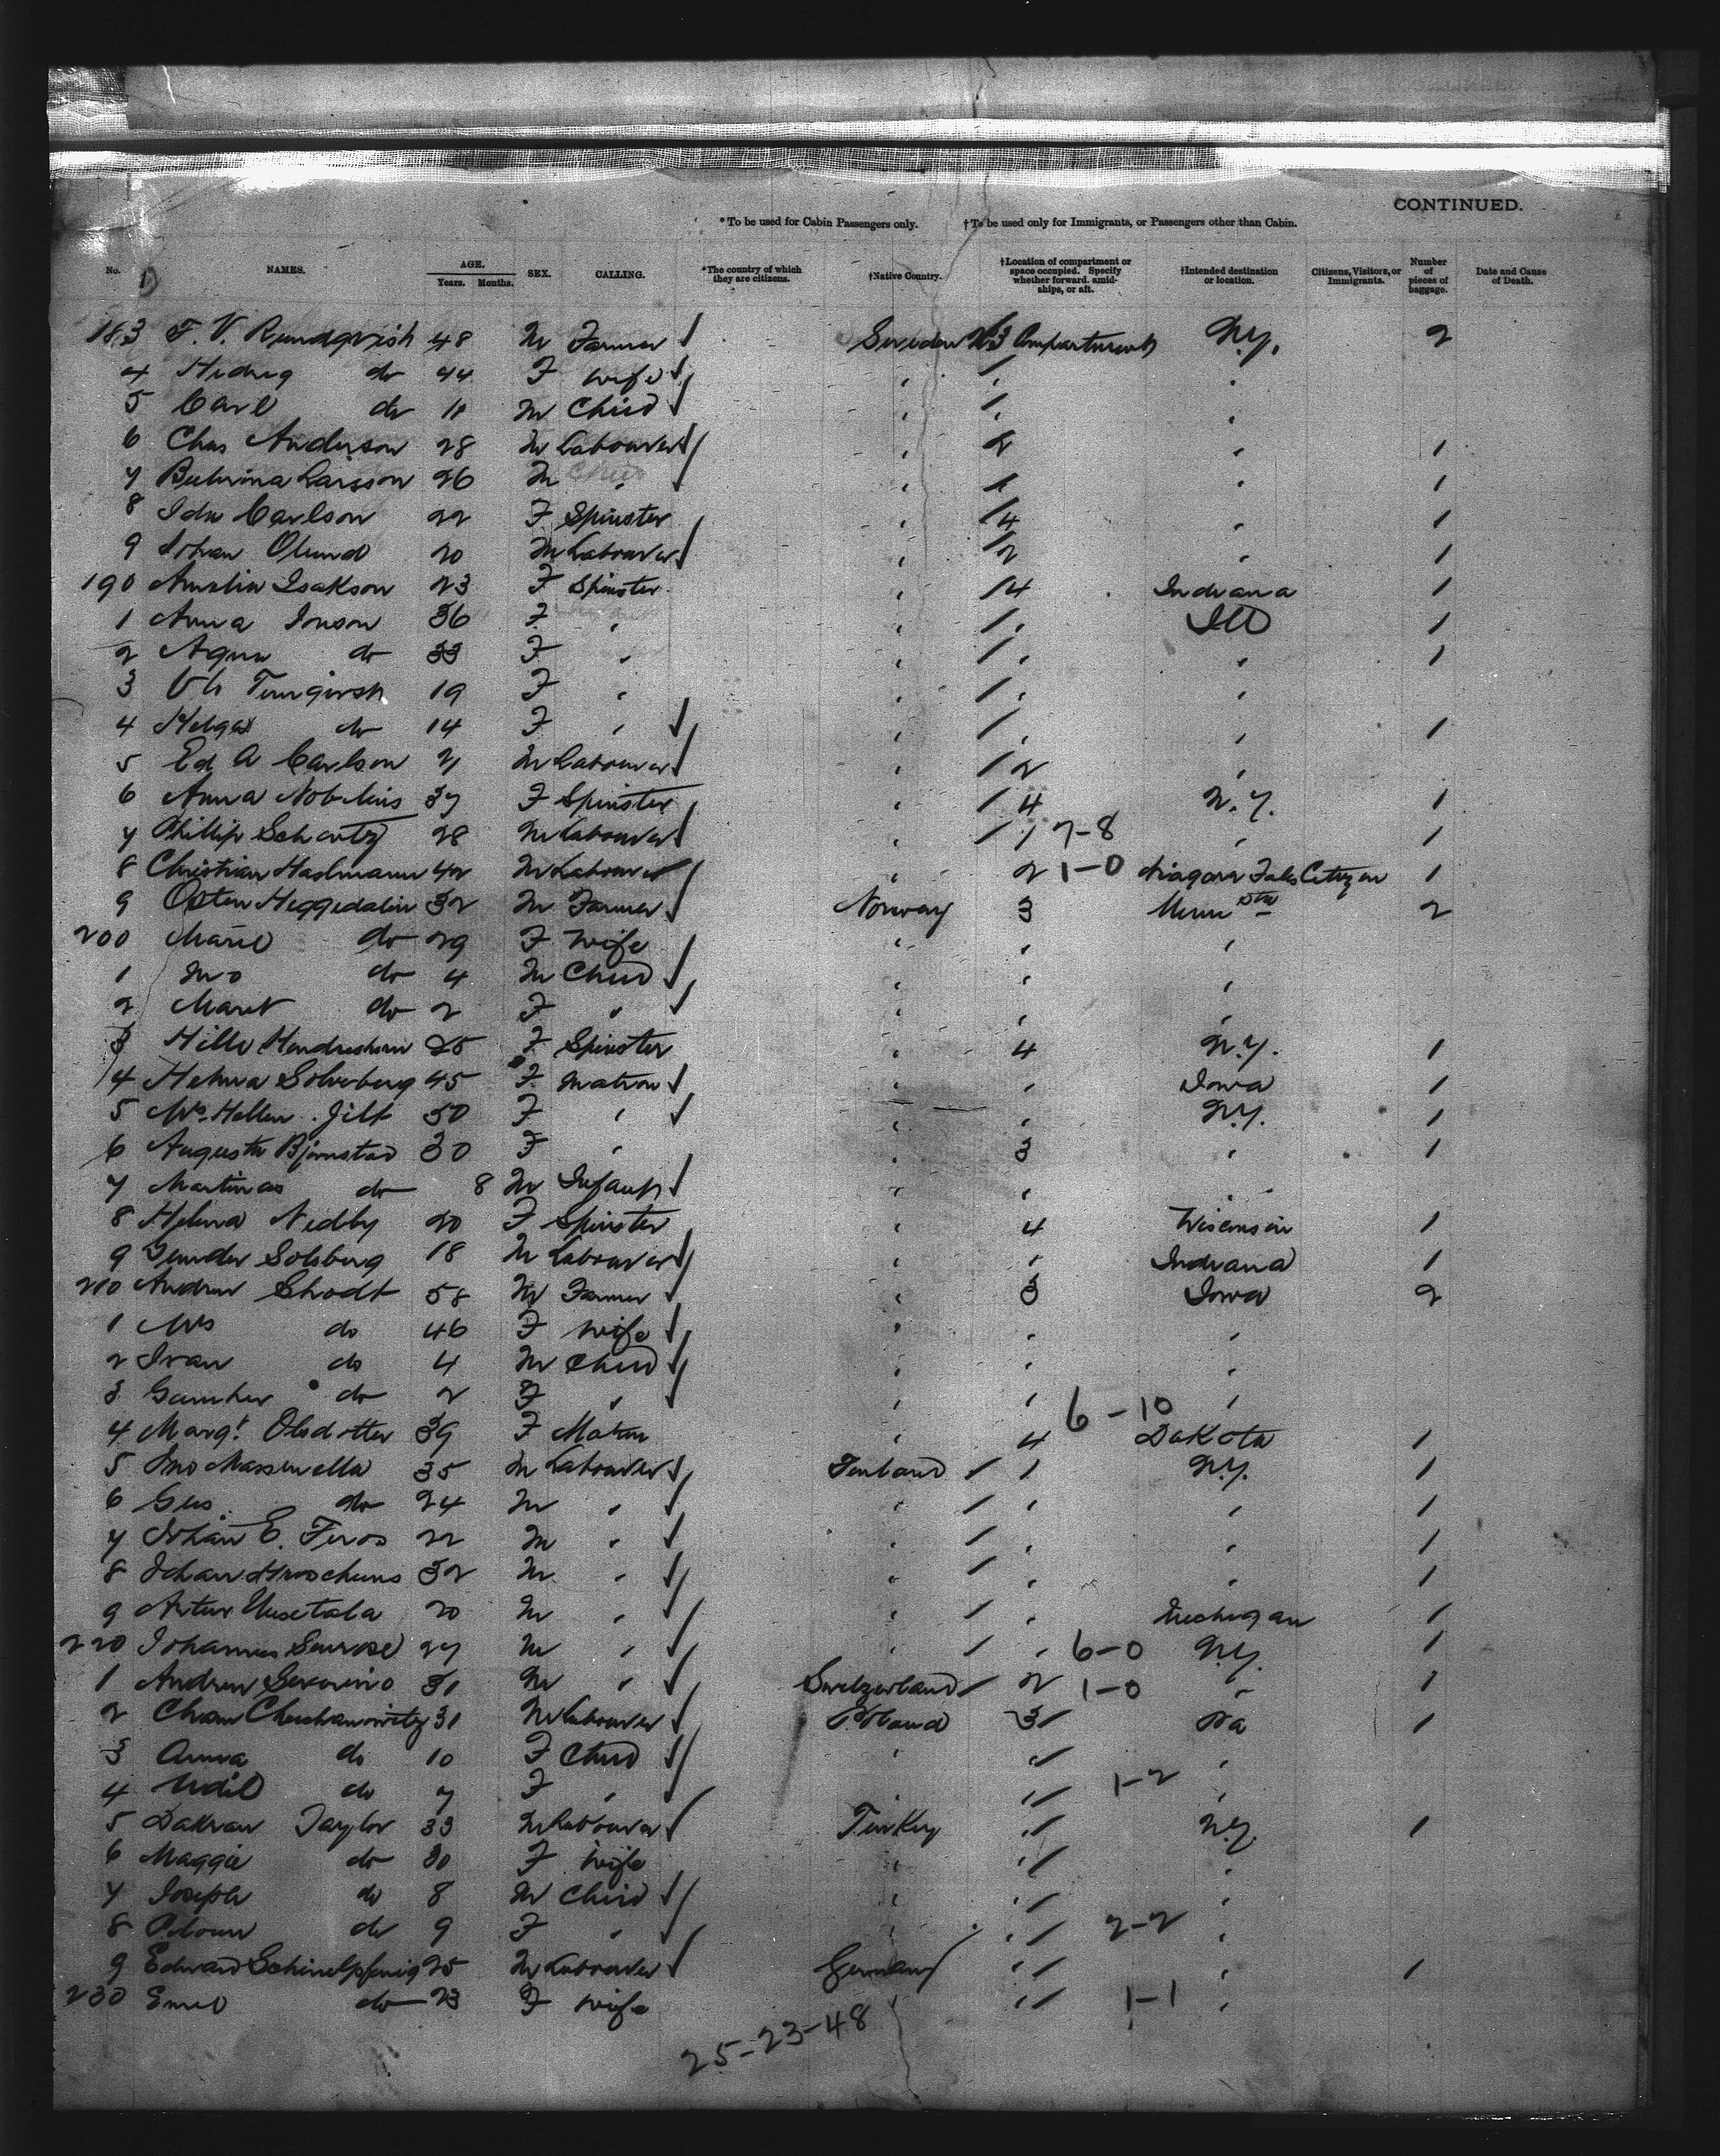 CONTINUED.
*To be used for Cabin Passengers only. †To be used only for Immigrants, or Passengers other than Cabin.
No. NAMES. AGE. Years. Months. SEX. CALLING. *The country of which they are citizens. †Native Country. †Location of compartment or space occupied. Specify whether forward, amidships, or aft. †Intended destination or location. Citizens, Visitors, or Immigrants. Number of pieces of baggage. Date and Cause of Death.
183 F. V. Rundqvish 48 M Farmer Sweden 3 Compartment N.Y. 2
4 Hedvig do 44 F wife
5 Carl do 11 M Child
6 Chas Anderson 28 M Labourer 2 1
7 Larsson 26 M " 1
8 Ida Carlson 22 F Spinster 4 1
9 Johan Olund 20 M Labourer 2 1
190 Amalia Isakson 23 F Spinster 4 Indiana 1
1 Anna Jonson 36 F " Ill 1
2 Agnes do 33 F " 1
3 19 F "
4 Helga do 14 F " 1
5 Ed A Carlson 21 M Labourer 2
6 Anna Nobelius 37 F Spinster 4 N.Y. 1
7 Phillip Schartz 28 M Labourer 1 7-8 1
8 Christian Haslmann 42 M Labourer 2 1-0 Niagara Falls Citizen 1
9 Osten Heggedalin 32 M Farmer Norway 3 Minn 2
200 Marie do 29 F Wife
1 Jno do 4 M Child
2 Maret do 2 F "
3 Hilli 25 F Spinster 4 N.Y. 1
4 Helma Solveberg 45 F Matron Iowa 1
5 Mrs. Hellen Jilt 50 F " N.Y. 1
6 Augusta Bjornstad 30 F " 3 1
7 Martinas do 8 M Infant
8 Helma Nedby 20 F Spinster 4 Wisconsin 1
9 Solsberg 18 M Labourer Indiana 1
210 Andrew Shodt 58 M Farmer 3 Iowa 2
1 Mrs do 46 F Wife
2 Ivan do 4 M Child
3 do 2 F "
6-10
4 Margt. Olsdotter 39 F Matron 4 Dakota 1
5 Jno Massinella 35 M Labourer Finland 1 N.Y. 1
6 Gus do 24 M " 1
7 Johan E. 22 M " 1
8 Johan 32 M " 1
9 Artur 20 M " Michigan 1
220 Johannes 27 M " 6-0 N.Y. 1
1 Andrew Severino 31 M " Switzerland 2 1-0 1
2 Chaim Chechanowitz 31 M Labourer Poland 3 Pa 1
3 Anna do 10 F Child
4 do 7 F " 1-2
5 Taylor 33 M Labourer Turkey N.Y. 1
6 Maggie do 30 F Wife
7 Joseph do 8 M Child
8 do 9 F " 2-2
9 Edward Schinelpfenig 25 M Labourer Germany 1
230 do 23 F Wife 1-1
25-23-48